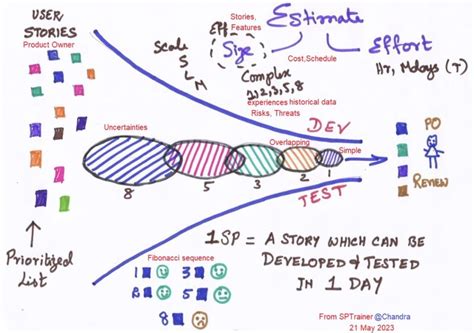 USER
STORIES
Product Owner
Scale
S
L
M
Eff
Stories,
Features
Size
Estimate
Cost,Schedule
Effort
Hr, Mdays (T)
Complex
1,2,3,5,8
experiences historical data
Risks, Threats
DEV
Uncertainties
Overlapping
Simple
8
5
3
2
1
TEST
PO
REVIEW
Prioritized
List
Fibonacci sequence
1
3
2
5
8
1SP = A STORY WHICH CAN BE
DEVELOPED & TESTED
IN 1 DAY
From SPTrainer @Chandra
21 May 2023